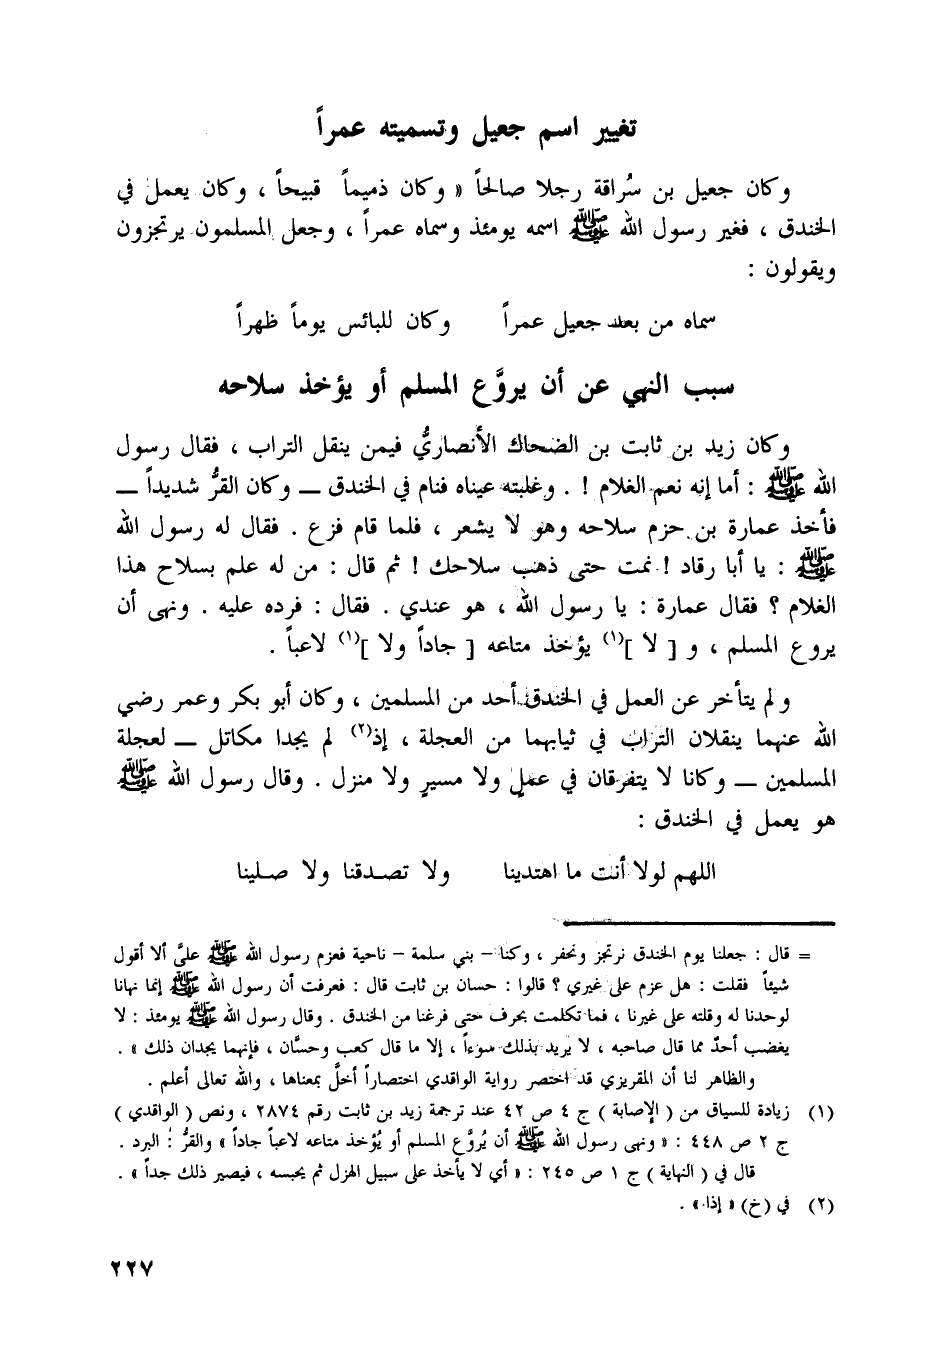 تغيير اسم جعيل وتسميته عمراً
وكان جعيل بن سُراقة رجلا صالحاً « وكان ذميماً قبيحاً ، وكان يعمل في
الخندق ، فغير رسول الله ﷺ اسمه يومئذ وسماه عمراً ، وجعل المسلمون يرتجزون
ويقولون :
سماه من بعد جعيل عمراً وكان للبائس يوماً ظهراً
سبب النهي عن أن يروَّع المسلم أو يؤخذ سلاحه
وكان زيد بن ثابت بن الضحاك الأنصاريُّ فيمن ينقل التراب ، فقال رسول
الله ﷺ : أما إنه نعم الغلام ! . وغلبته عيناه فنام في الخندق ــ وكان القرُّ شديداً ــ
فأخذ عمارة بن حزم سلاحه وهو لا يشعر ، فلما قام فزع . فقال له رسول الله
ﷺ : يا أبا رقاد ! نمت حتى ذهب سلاحك ! ثم قال : من له علم بسلاح هذا
الغلام ؟ فقال عمارة : يا رسول الله ، هو عندي . فقال : فرده عليه . ونهى أن
يروع المسلم ، و [ لا ](١) يؤخذ متاعه [ جاداً ولا ](١) لاعباً .
ولم يتأخر عن العمل في الخندق أحد من المسلمين ، وكان أبو بكر وعمر رضي
الله عنهما ينقلان التراب في ثيابهما من العجلة ، إذ(٢) لم يجدا مكاتل ــ لعجلة
المسلمين ــ وكانا لا يتفرقان في عملٍ ولا مسيرٍ ولا منزل . وقال رسول الله ﷺ
هو يعمل في الخندق :
اللهم لولا أنت ما اهتدينا ولا تصـدقنا ولا صـلينا
= قال : جعلنا يوم الخندق نرتجز ونحفر ، وكنا – بني سلمة – ناحية فعزم رسول الله ﷺ عليَّ ألا أقول
شيئاً فقلت : هل عزم على غيري ؟ قالوا : حسان بن ثابت قال : فعرفت أن رسول الله ﷺ إنما نهانا
لوحدنا له وقلته على غيرنا ، فما تكلمت بحرف حتى فرغنا من الخندق . وقال رسول الله ﷺ يومئذ : لا
يغضب أحدٌ مما قال صاحبه ، لا يريد بذلك سوءاً ، إلا ما قال كعب وحسَّان ، فإنهما يجدان ذلك » .
والظاهر لنا أن المقريزي قد اختصر رواية الواقدي اختصاراً أخلَّ بمعناها ، والله تعالى أعلم .
(١) زيادة للسياق من ( الإصابة ) ج ٤ ص ٤٢ عند ترجمة زيد بن ثابت رقم ٢٨٧٤ ، ونص ( الواقدي )
ج ٢ ص ٤٤٨ : « ونهى رسول الله ﷺ أن يُروَّع المسلم أو يُؤخذ متاعه لاعباً جاداً » والقرُّ : البرد .
قال في ( النهاية ) ج ١ ص ٢٤٥ : « أي لا يأخذ على سبيل الهزل ثم يحبسه ، فيصير ذلك جداً » .
(٢) في (خ) « إذا » .
٢٢٧